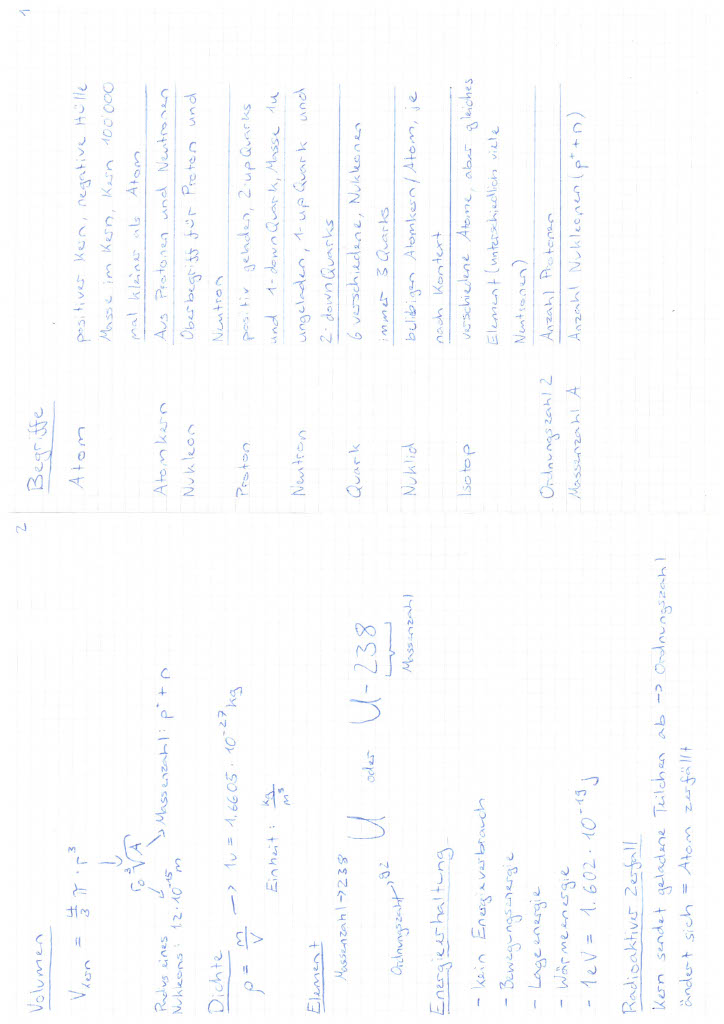 1
Begriffe
Atom positiver Kern, negative Hülle
Masse im Kern, Kern 100'000
mal kleiner als Atom
Atomkern Aus Protonen und Neutronen
Nukleon Oberbegriff für Proton und
Neutron
Proton positiv geladen, 2·up Quarks
und 1·down Quark, Masse 1u
Neutron ungeladen, 1·up Quark und
2·down Quarks
Quark 6 verschiedene, Nukleonen
immer 3 Quarks
Nuklid belibigen Atomkern/Atom, je
nach Kontext
Isotop verschiedene Atome, aber gleiches
Element (unterschiedlich viele
Neutronen)
Ordnungszahl Z Anzahl Protonen
Massenzahl A Anzahl Nukleonen (p⁺+n)
2
Volumen
V Kern = 4/3 π · r³
r₀ ³√A
Radius eines Nukleons: 1.2·10⁻¹⁵ m
Massenzahl: p⁺+n
Dichte
ρ = m/V → 1u = 1.6605 · 10⁻²⁷ kg
Einheit: kg/m³
Element
Massenzahl → 238
U oder U-238
Ordnungszahl → 92
Massenzahl
Energieerhaltung
- kein Energieverbrauch
- Bewegungsenergie
- Lageenergie
- Wärmeenergie
- 1eV = 1.602 · 10⁻¹⁹ J
Radioaktiver Zerfall
Kern sendet geladene Teilchen ab → Ordnungszahl
ändert sich = Atom zerfällt